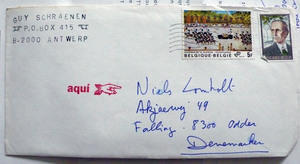 GUY SCHRAENEN
P.O.BOX 415
B-2000 ANTWERP
BELGIQUE-BELGIË 5F
aquí
Niels Lomholt
49
Falling 8300 Odder
Denemarken